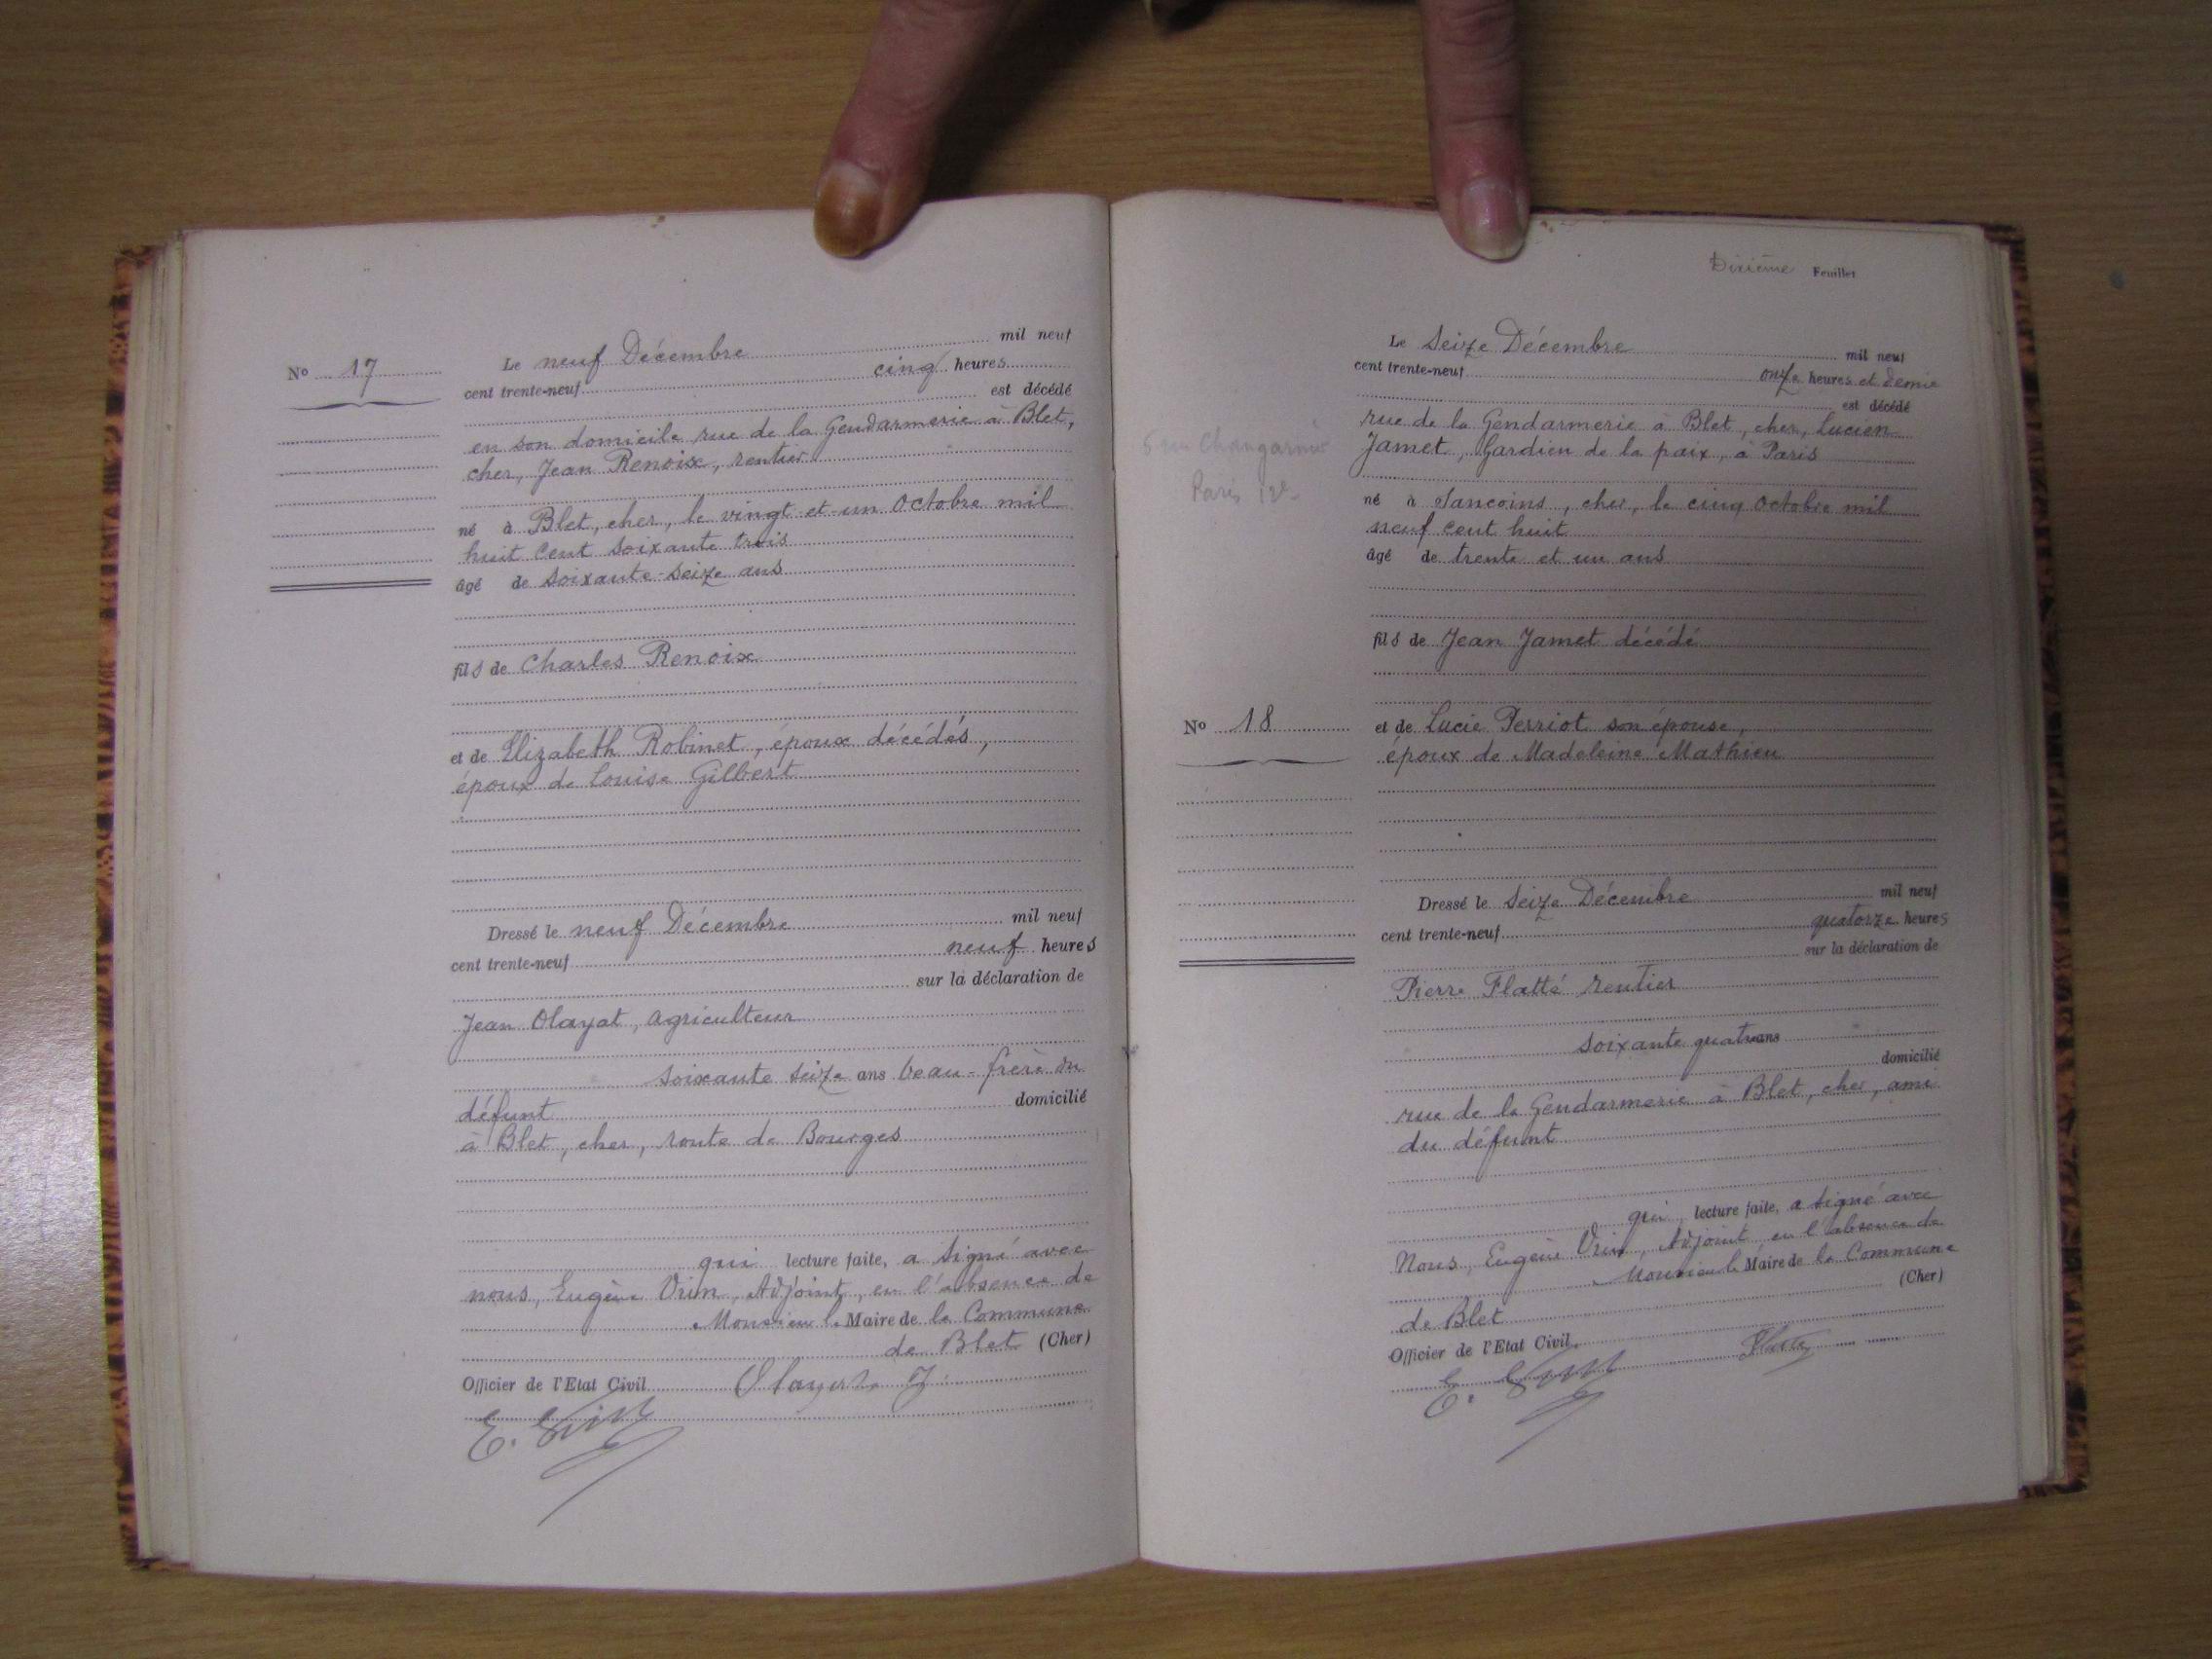 No 17
Le neuf Décembre mil neuf
cent trente-neuf cinq heures
est décédé
en son domicile rue de la Gendarmerie à Blet,
cher, Jean Renoix, rentier
né à Blet, cher, le vingt et un Octobre mil
huit cent soixante trois
âgé de soixante-seize ans
fils de Charles Renoix
et de Elizabeth Robinet, époux décédés,
époux de Louise Gilbert
Dressé le neuf Décembre mil neuf
cent trente-neuf neuf heures
sur la déclaration de
Jean Olayat, agriculteur
soixante seize ans beau-frère du
défunt domicilié
à Blet, cher, route de Bourges
qui lecture faite, a signé avec
nous, Eugène Vrin, Adjoint, en l'absence de
Monsieur le Maire de la Commune
de Blet (Cher)
Officier de l'Etat Civil
Dixième Feuillet
Le Seize Décembre mil neuf
cent trente-neuf onze heures et demie
est décédé
rue de la Gendarmerie à Blet, cher, Lucien
Jamet, Gardien de la paix, à Paris
5 rue Changarnier
Paris 12e
né à Sancoins, cher, le cinq Octobre mil
neuf cent huit
âgé de trente et un ans
fils de Jean Jamet décédé
No 18
et de Lucie Perriot son épouse,
époux de Madeleine Mathieu
Dressé le Seize Décembre mil neuf
cent trente-neuf quatorze heures
sur la déclaration de
Pierre Flatté rentier
soixante quatre ans
domicilié
rue de la Gendarmerie à Blet, cher, ami
du défunt
qui lecture faite, a signé avec
Nous, Eugène Vrin, Adjoint, en l'absence de
Monsieur le Maire de la Commune
de Blet (Cher)
Officier de l'Etat Civil
E. Vrin